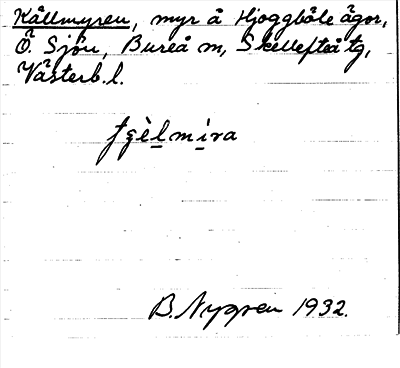 Källmyren, myr å Hjoggböle ägor,
Ö. Sjön, Bureå sn, Skellefteå tg,
Västerb. l.
tʒèlmira
B. Nygren 1932.